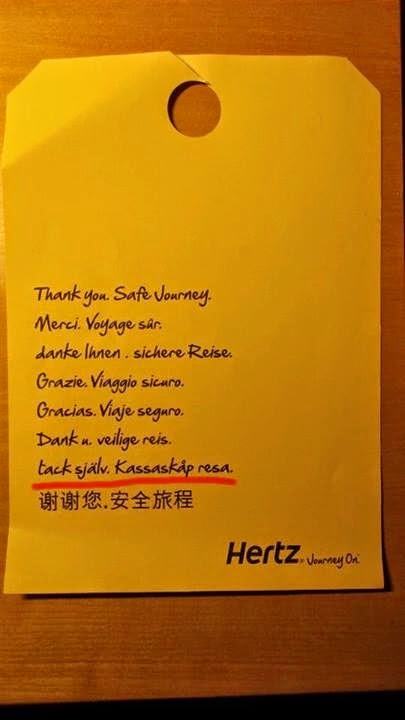 Thank you. Safe Journey.
Merci. Voyage sûr.
danke Ihnen . sichere Reise.
Grazie. Viaggio sicuro.
Gracias. Viaje seguro.
Dank u. veilige reis.
tack själv. Kassaskåp resa.
谢谢您.安全旅程
Hertz® Journey On™